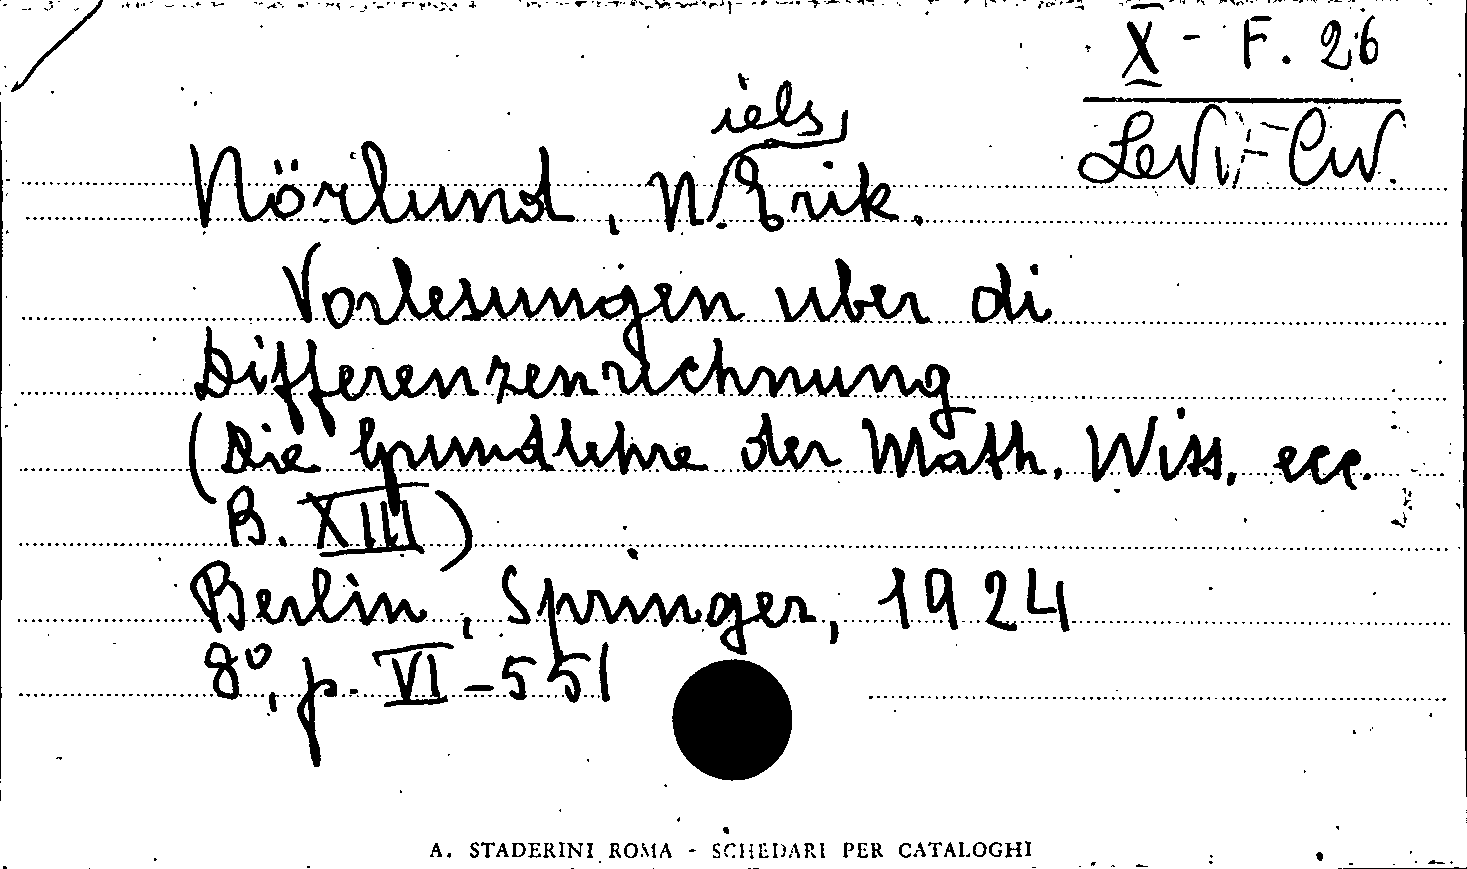 X - F. 26
Levi-Civ.
iels
Nörlund, N. Erik.
Vorlesungen uber di
Differenzenrechnung
(Die Grundlehre der Math. Wiss. ecc.
B. XIII)
Berlin, Springer, 1924
8°, p. VI-551
A. STADERINI ROMA - SCHEDARI PER CATALOGHI